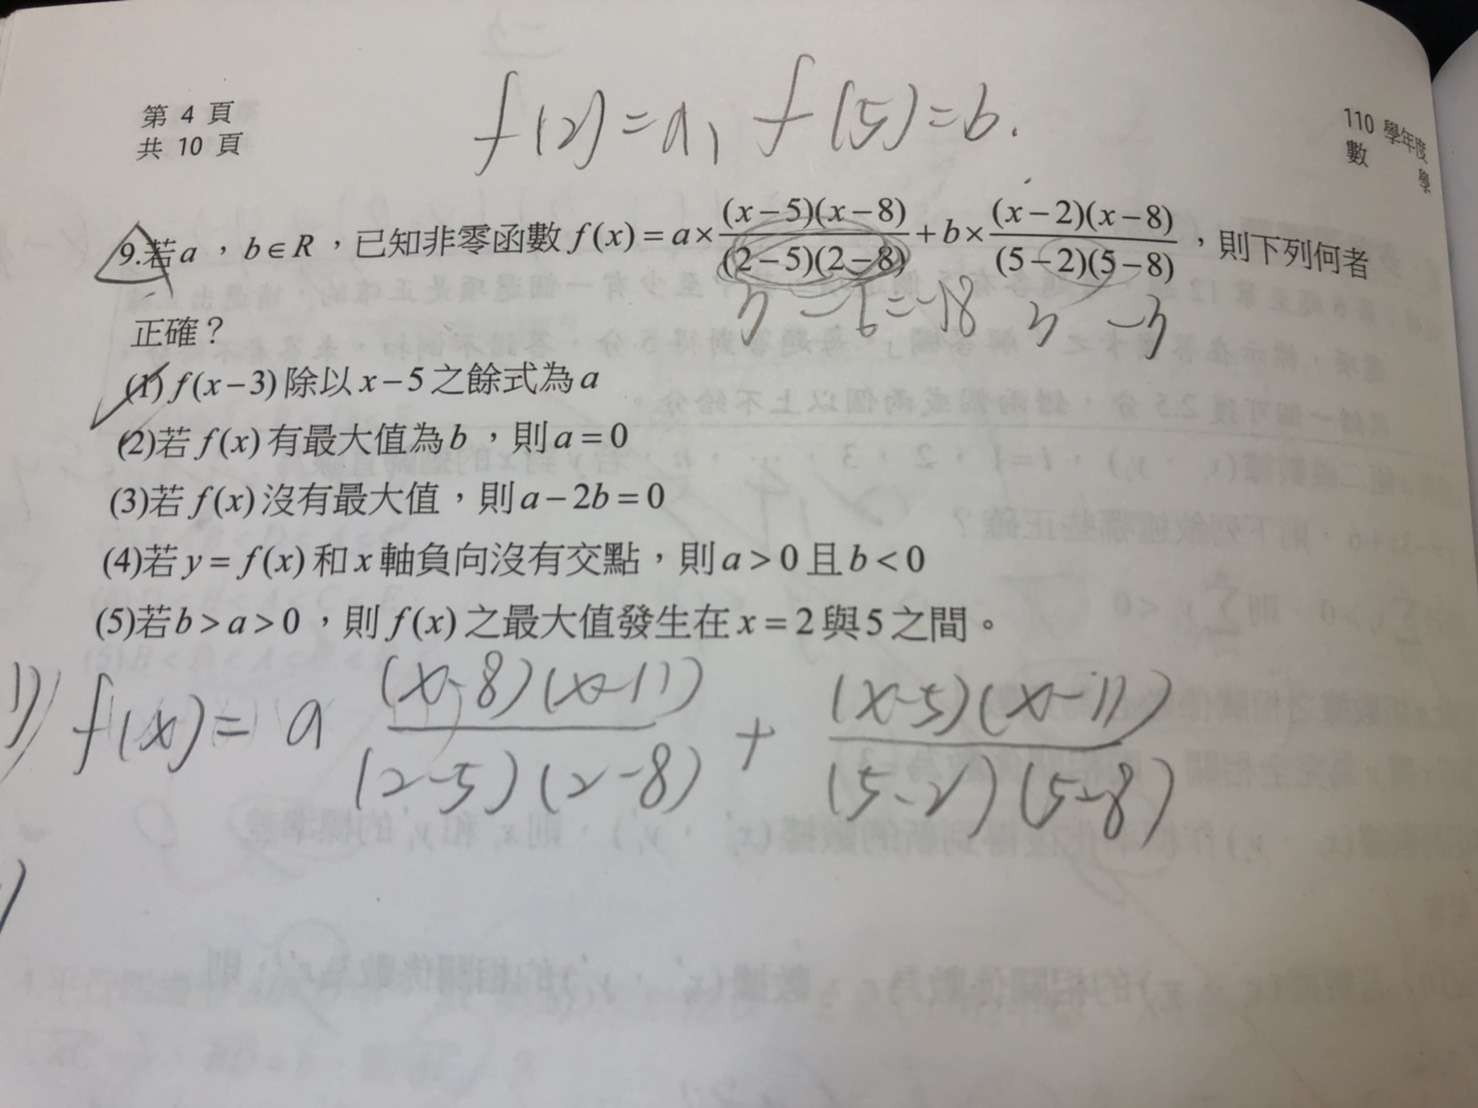 第 4 頁
共 10 頁
110 學年度
數 學
f(2)=a, f(5)=b.
9.若a,b∈R,已知非零函數 f(x)=a×\frac{(x-5)(x-8)}{(2-5)(2-8)}+b×\frac{(x-2)(x-8)}{(5-2)(5-8)},則下列何者
3 -6=-18 3 -3
正確?
(1) f(x-3)除以x-5之餘式為a
(2)若 f(x)有最大值為b,則a=0
(3)若 f(x)沒有最大值,則a-2b=0
(4)若y=f(x)和x軸負向沒有交點,則a>0且b<0
(5)若b>a>0,則 f(x)之最大值發生在x=2與5之間。
1) f(x)= a \frac{(x-8)(x-11)}{(2-5)(2-8)} + \frac{(x-5)(x-11)}{(5-2)(5-8)}